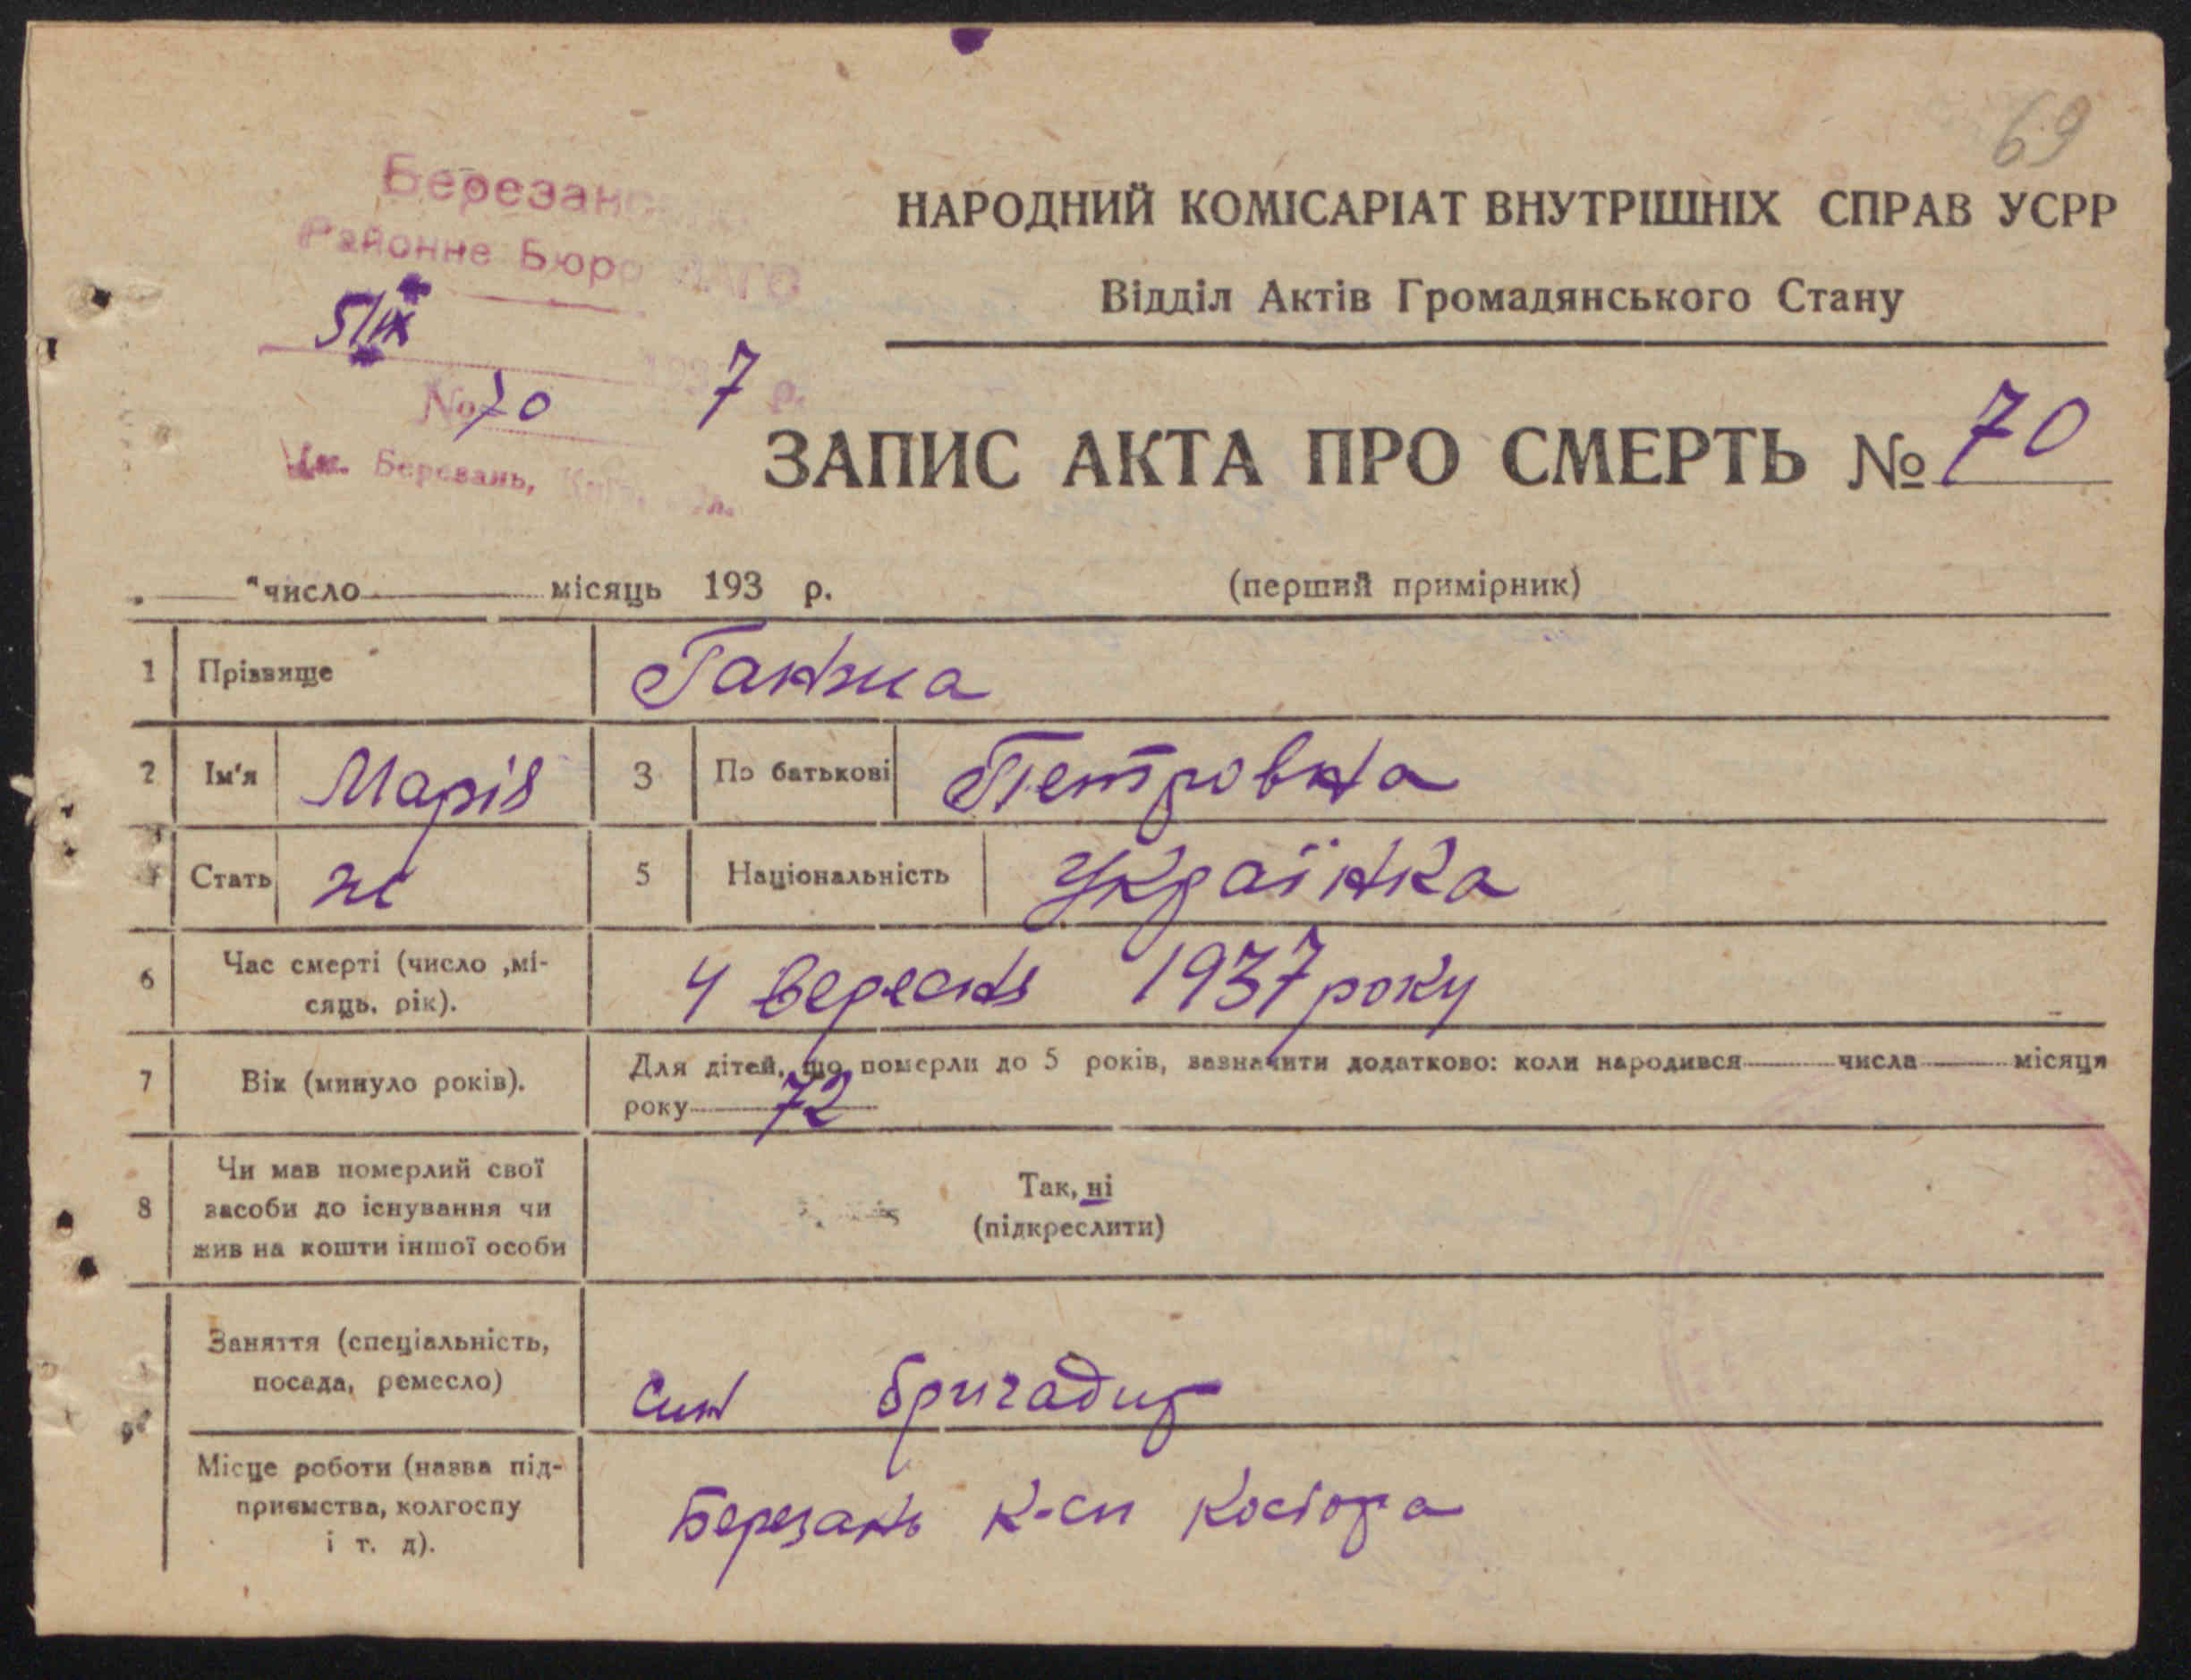 69
Березан
Районне Бюро ЗАГС
5/ІХ 1937 р.
№ 70
Березань,
НАРОДНИЙ КОМІСАРІАТ ВНУТРІШНІХ СПРАВ УСРР
Відділ Актів Громадянського Стану
ЗАПИС АКТА ПРО СМЕРТЬ № 70
„ “ число місяць 193 р. (перший примірник)
1 Прізвище Ганжа
2 Ім'я Марія 3 По батькові Петровна
4 Стать ж 5 Національність Українка
6 Час смерті (число ,мі-
сяць, рік). 4 вересня 1937 року
7 Вік (минуло років). Для дітей, що померли до 5 років, зазначити додатково: коли народився числа місяця
року 72
8 Чи мав померлий свої
засоби до існування чи
жив на кошти іншої особи
Так, ні
(підкреслити)
Заняття (спеціальність,
посада, ремесло) Син бригадир
Місце роботи (назва під-
приємства, колгоспу
і т. д).
Березань к-сп Косіора